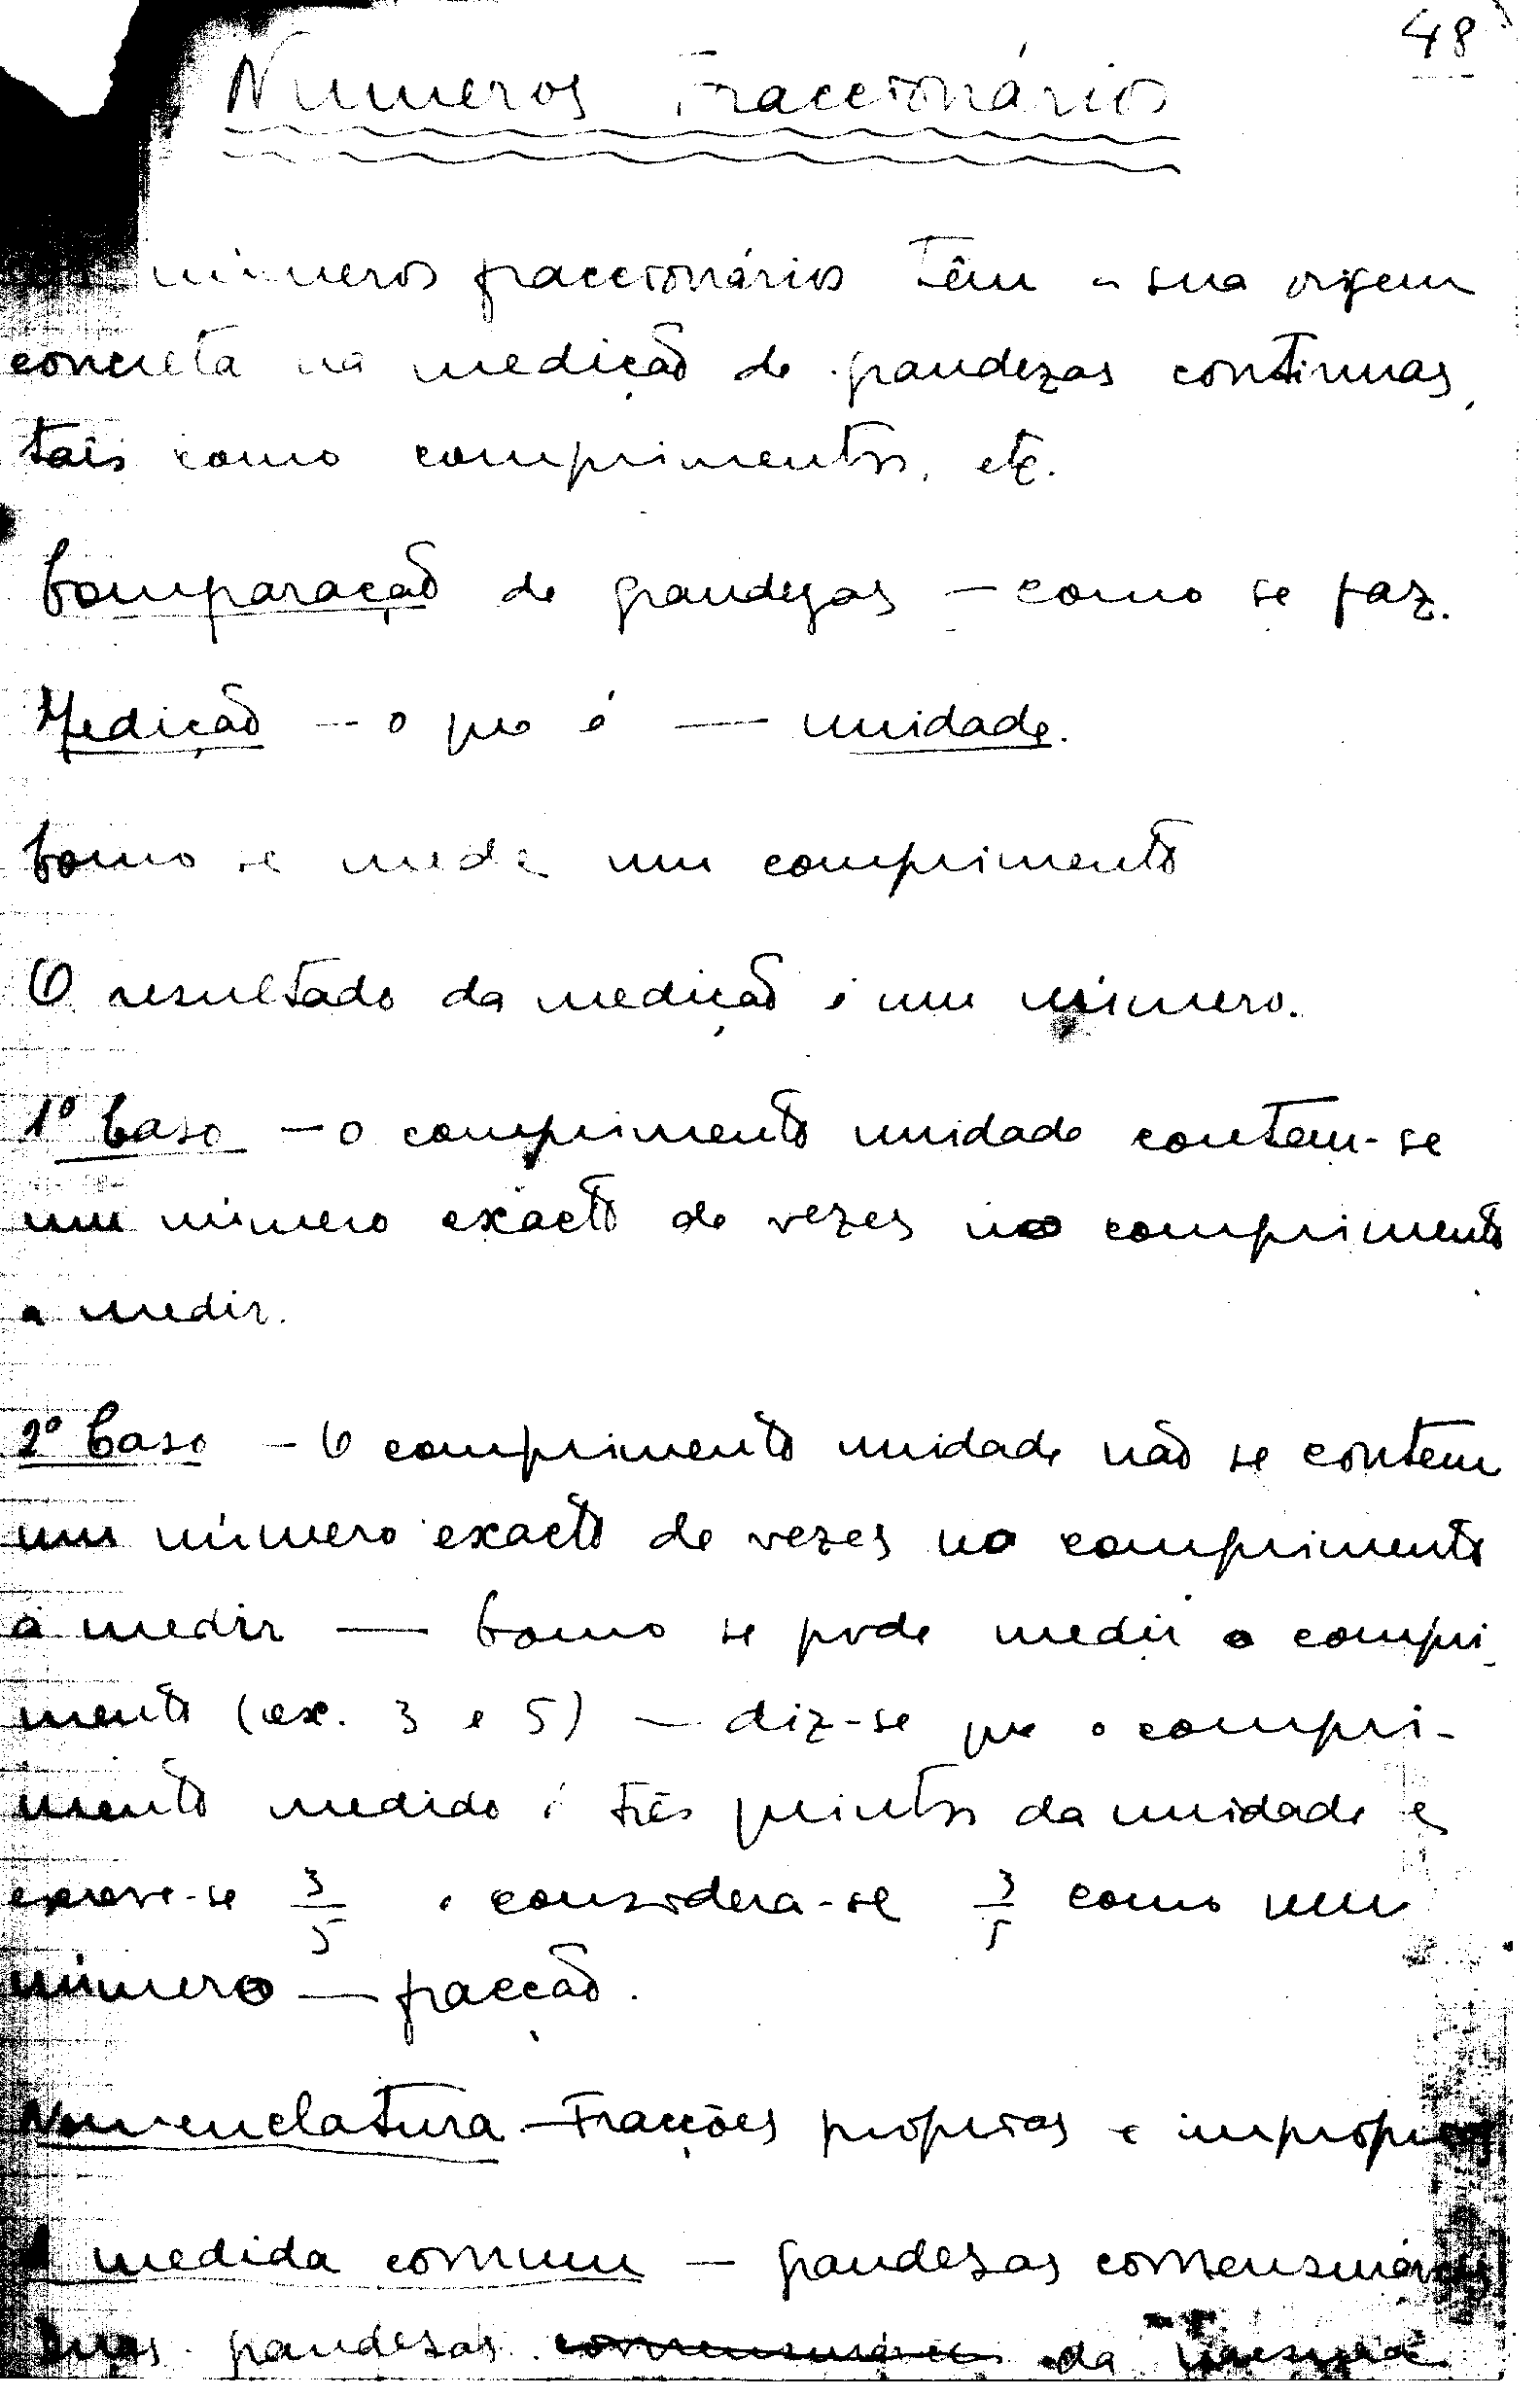 48
Números Fraccionários
números fraccionários têm a sua origem
concreta na medição de grandezas contínuas,
tais como comprimentos, etc.
Comparação de grandezas — como se faz.
Medição — o que é — unidade.
Como se mede um comprimento
O resultado da medição é um número.
1º Caso — o comprimento unidade contem-se
um número exacto de vezes no comprimento
a medir.
2º Caso — O comprimento unidade não se contem
um número exacto de vezes no comprimento
a medir — Como se pode medir o compri
mento (ex. 3 e 5) — diz-se que o compri-
mento medido é três quintos da unidade e
escreve-se 3/5 e considera-se 3/5 como um
número — fracção.
Nomenclatura — Fracções próprias e impróprias
A medida comum — grandezas comensuráveis
Duas grandezas comensuráveis da mesma